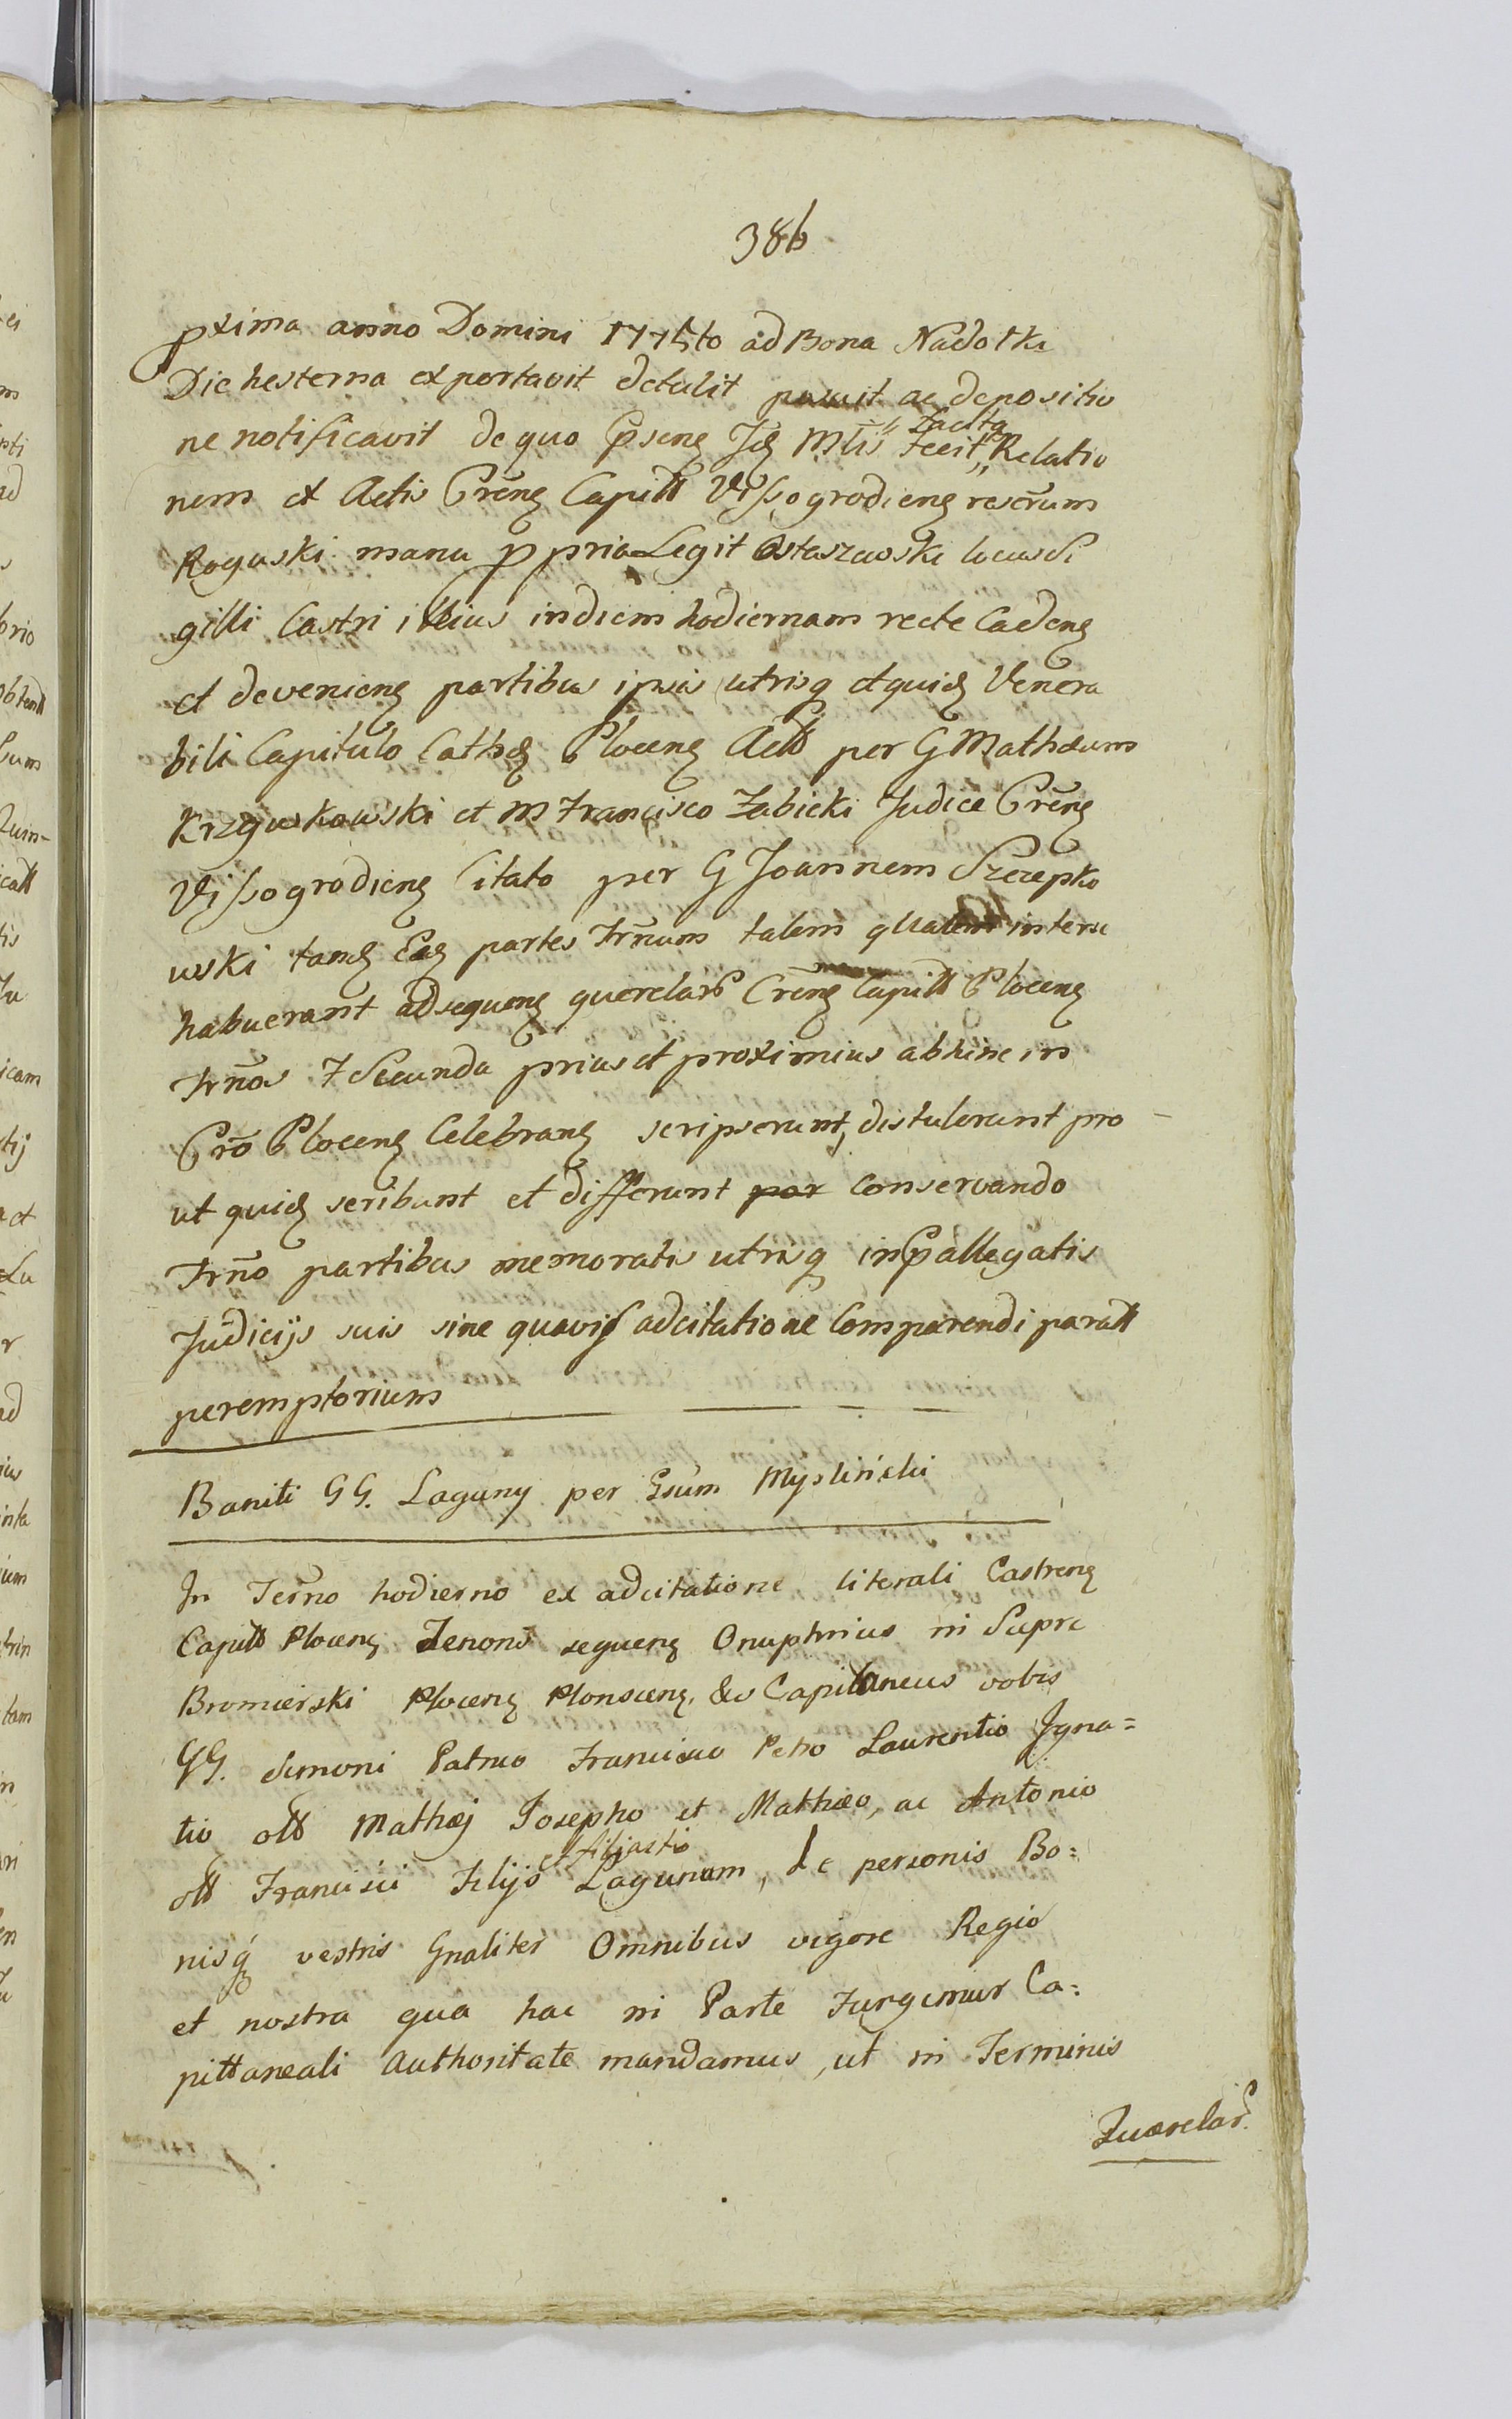 386
pxima anno Domini 1775to ad Bona Nadołki
Die hesterna exportavit detulit posuit ac depositio
ne notificavit de quo Psens Jd Mlis Fecit „facta„ Relatio
nem ex Actis Crens Capitt Vissogrodiens rescrum
Roguski manu ppria Legit Ostaszewski locus Si
gilli Castri illius in diem hodiernam recte Cadens
et deveniens partibus ipsis utrisq et quid Venera
bili Capitulo Cathed Plocens Actt per G Mathæum
Krzywkowski et M Francisco Zabicki Judice Crens
Vissogrodiens Citato per G Joannem Szczepko
wski tamq Eaq partes Trnum talem qualem inter se
habuerant ad sequens querelar Crens Capitt Plocens
Trnos 7 Secunda prius et proximius abhinc in
Cro Plocens Celebrans scripserunt, distulerunt pro
ut quid scribunt et differunt par conservando
Trno partibus memoratis utrisq in Pallegatis
Judicijs suis sine quavis adcitatione Comparendi paratt
peremptorium
Baniti GG. Laguny per Gsum Myśliński
In Terno hodierno ex adcitatione literali Castrens
Capitt Plocens Tenoris sequens Onuphrius in Supre
Bromierski Plocens Plonscens &c Capitaneus vobis
GG. Simoni Patruo Francisco Petro Laurentio Igna=
tio ott Mathæj Josepho et Mathæo, ac Antonio
ott Francisci Filijs et filiastis Lagunom, de personis Bo=
nisq vestris Gnaliter Omnibus vigore Regio
et nostra qua hac in Parte Fungimur Ca=
pittaneali Authoritate mandamus, ut in Terminis
Quærelar.